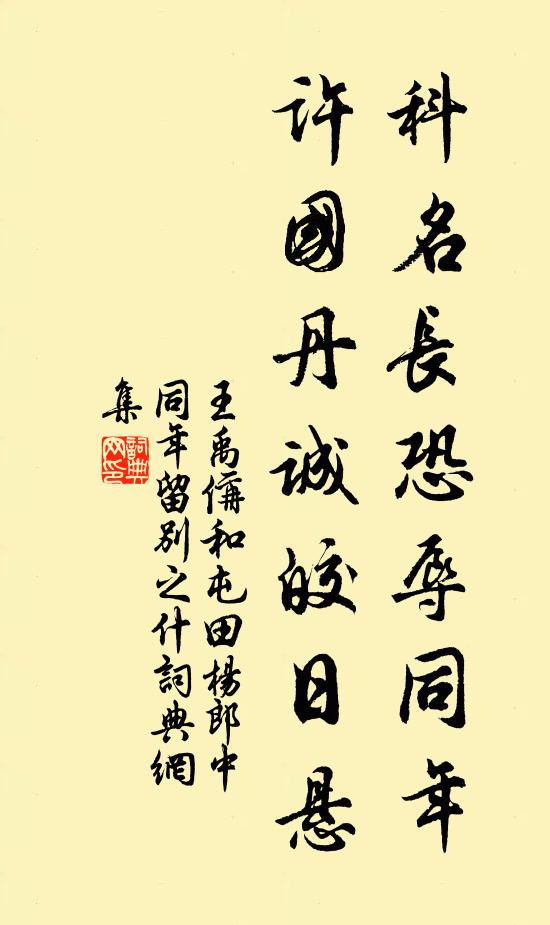 科名長恐辱同年
許國丹誠皎日悬
王禹偁和屯田楊郎中
同年留别之什詞典網
集
詞典網印